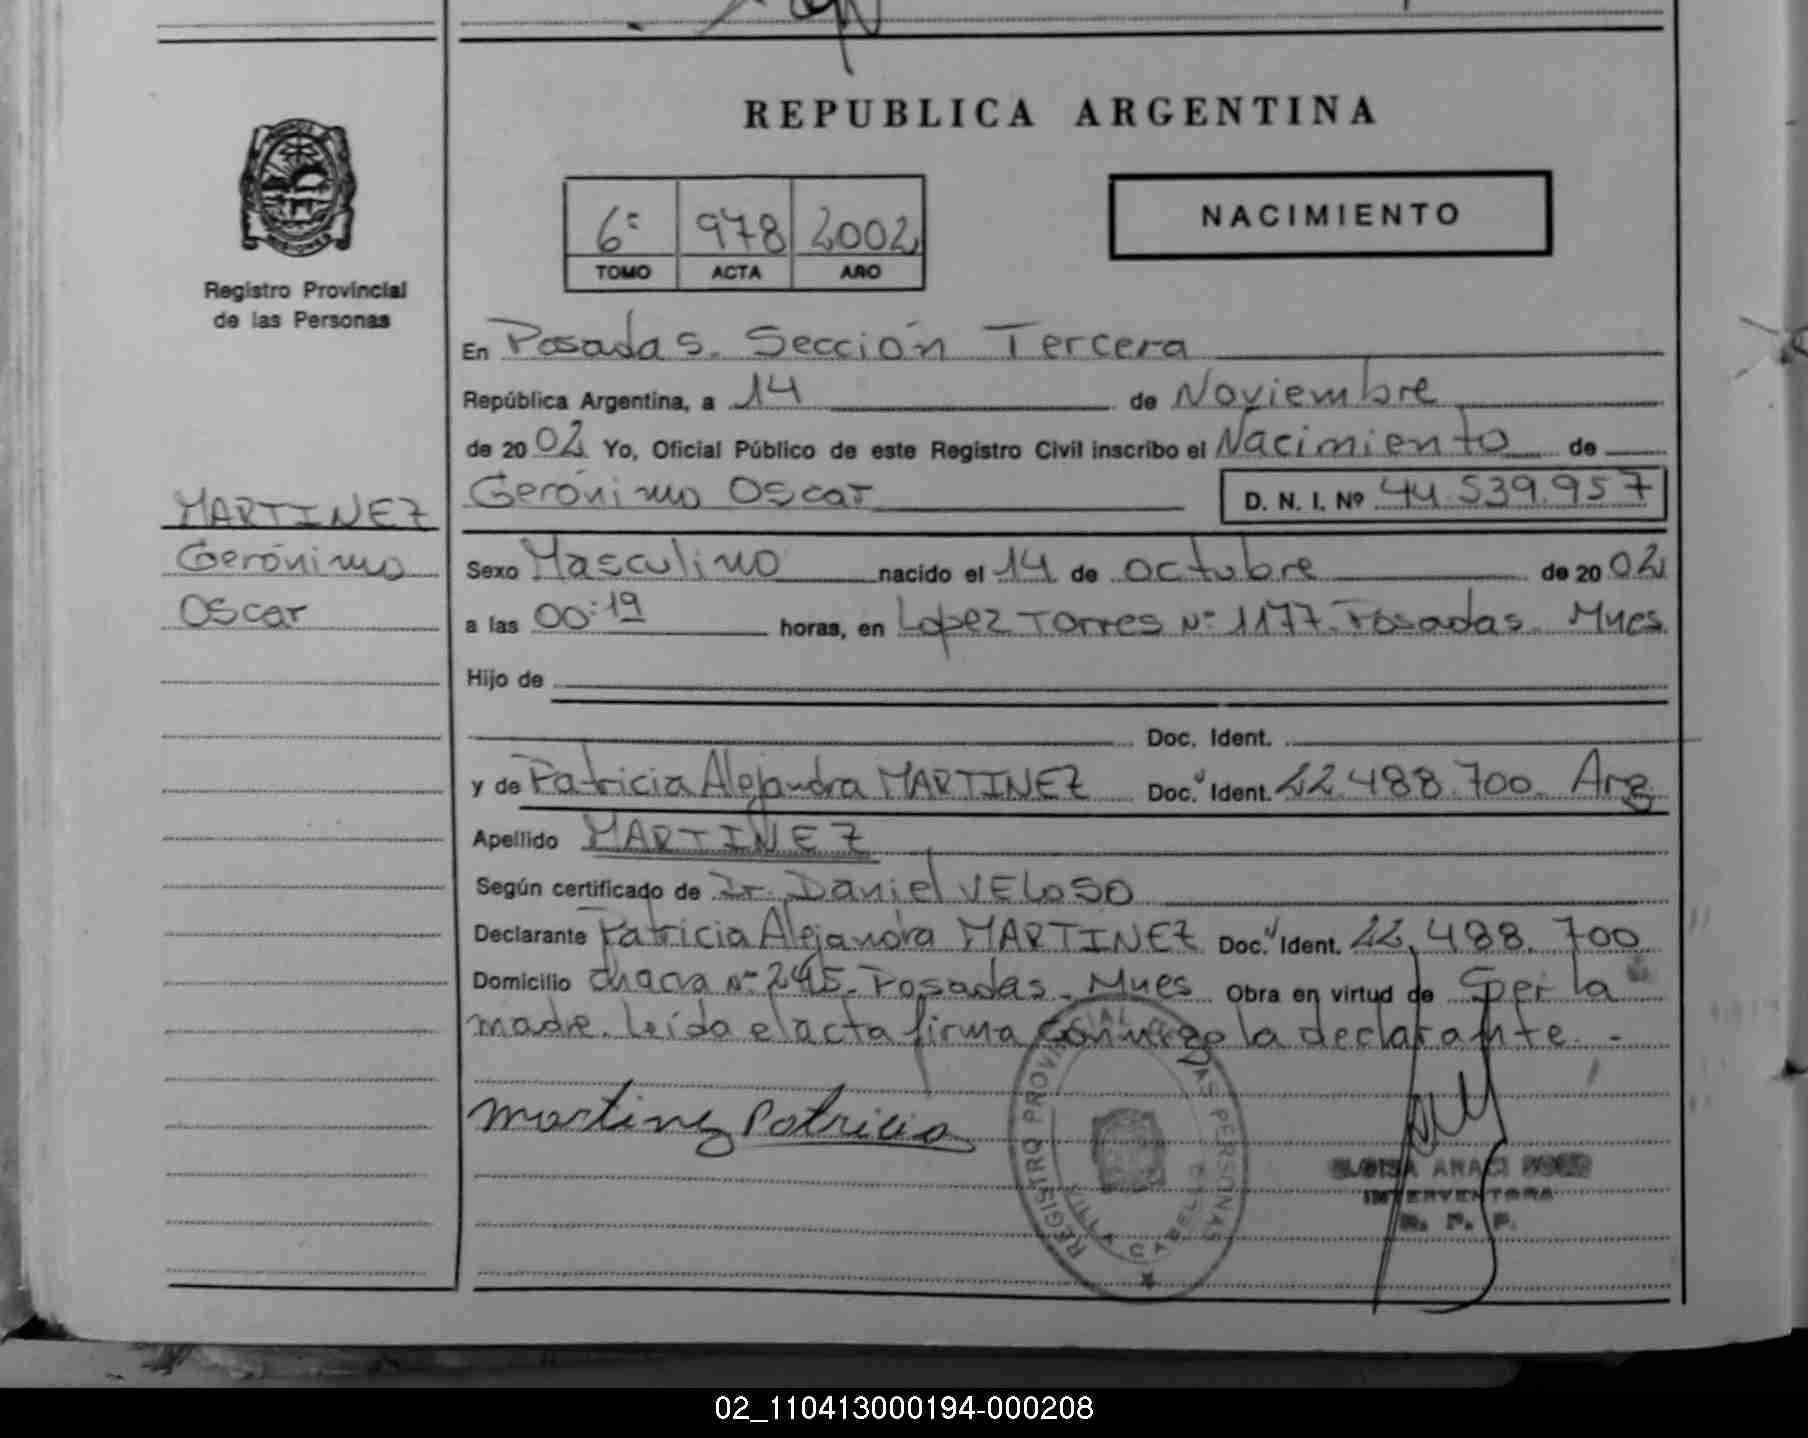 REPUBLICA ARGENTINA
6º 978 2002
TOMO ACTA AÑO
NACIMIENTO
Registro Provincial
de las Personas
En Posadas. Sección Tercera
República Argentina, a 14 de Noviembre
de 2002 Yo, Oficial Público de este Registro Civil inscribo el Nacimiento de
Gerónimo Oscar D. N. I. Nº 44.539.957
MARTINEZ
Gerónimo
Oscar
Sexo Masculino nacido el 14 de octubre de 2002
a las 00:19 horas, en Lopez Torres Nº 1177. Posadas. Mnes.
Hijo de
Doc. Ident.
y de Patricia Alejandra MARTINEZ Doc. Ident. 22.488.700. Arg
Apellido MARTINEZ
Según certificado de Dr. Daniel VELOSO
Declarante Patricia Alejandra MARTINEZ Doc. Ident. 22.488.700
Domicilio chacra Nº 245. Posadas. Mnes Obra en virtud de Ser la
madre. Leída el acta firma conmigo la declarante.-
Martinez Patricia
REGISTRO PROVINCIAL DE LAS PERSONAS
VILLA CABELLO
ELOISA ARACI
INTERVENTORA
R. P. P.
02_110413000194-000208